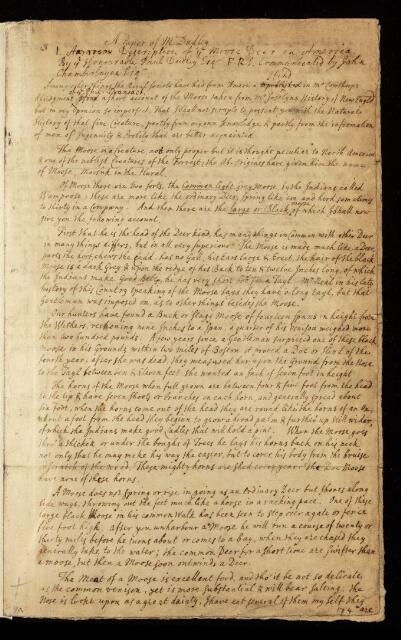 A Paper of Mr Dudley
1. A Description of ye Moose Deer in America
By ye Honourable Paul Dudley Esq. F.R.S. Communicated by John
Chamberlayne Esqr
I find
the Royal Society have had from
a short account of the Moose taken from Mr Josselyns History of New England
but in my Opinion so imperfect, that I shall not scruple to present you with the Natural
History of that fine Creature, partly from my own Knowledge & partly from the information
of men of Ingenuity & Probity that are better acquainted
The Moose is a Creature not only proper but it is thought peculiar to North America
& one of the noblest Creatures of the Forrest; the Ab-Origines have given him the name
of Moose, Moosuk in the Plural
Of Moose there are two sorts, the Common light Grey Moose by the Indians called
Wampoose; these are more like the ordinary Deer, spring like em and herd sometimes
to thirty in a company. And then there are the large or Black Moose, of which I shall now
give you the following account
First that he is the head of the Deer kind, has many things in common with other Deer
in many things differs, but in all very superiour. The Moose is made much like a Deer,
parts the hoof, chews the cudd, has no Gall, his Ears large & Erect, the hair of the black
Moose is a dark Grey & upon the ridge of his Back is ten & twelve Inches long, of which
the Indians make Good Belts, he has very short Tail. Mr Neal in his late
history of this Country speaking of the Moose says they have a long Tayl, but that
Gentleman was imposed on, as to other things besides the Moose
Our hunters have found a Buck or Stagg Moose of fourteen spans in height from
the Withers, reckoning nine Inches to a Span, a quarter of his Venison weighed more
than two hundred pounds. A few years since a Gentleman surprised one of these black
moose in his Grounds within two miles of Boston it proved a Doe or Hind of the
fourth year; after she was dead, they measured her upon the Ground from the Nose
to the Tayl between ten & Eleven feet she wanted an Inch of seven foot in height
The horns of the Moose when full grown are between four & five foot from the head
to the tip & have seven shoots or branches on each horn, and generally spread about
six foot, when the horns come out of the head they are round like the horns of an Ox,
about a foot from the head they begin to grow a broad palm & further up still wider,
of which the Indians make good ladles that will hold a pint. When the Moose goes
thro a thicket or under the boughs of Trees he lays his horns back on his neck,
not only that he may make his way the easier, but to cover his body from the bruise
or scratch of the wood. These mighty horns are shed every year the Doe Moose
have none of these horns.
A Moose does not spring or rise in going as an Ordinary Deer but shoves along
side ways, throwing out the feet much like a horse in a racking pace. One of these
large black Moose in his common Walk has been seen to step over a gate or fence
five foot high. after you unharbour a Moose he will run a course of twenty or
thirty miles before he turns about or comes to a bay, when they are chased they
generally take to the water; the common Deer for a short time are swifter than
a moose, but then a Moose soon outwinds a Deer.
The Meat of a Moose is excellent food, and tho' it be not so delicate
as the common venison, yet is more substantial & will bear salting. the
Nose is look't upon as a great dainty, I have eat several of them my self, they
are